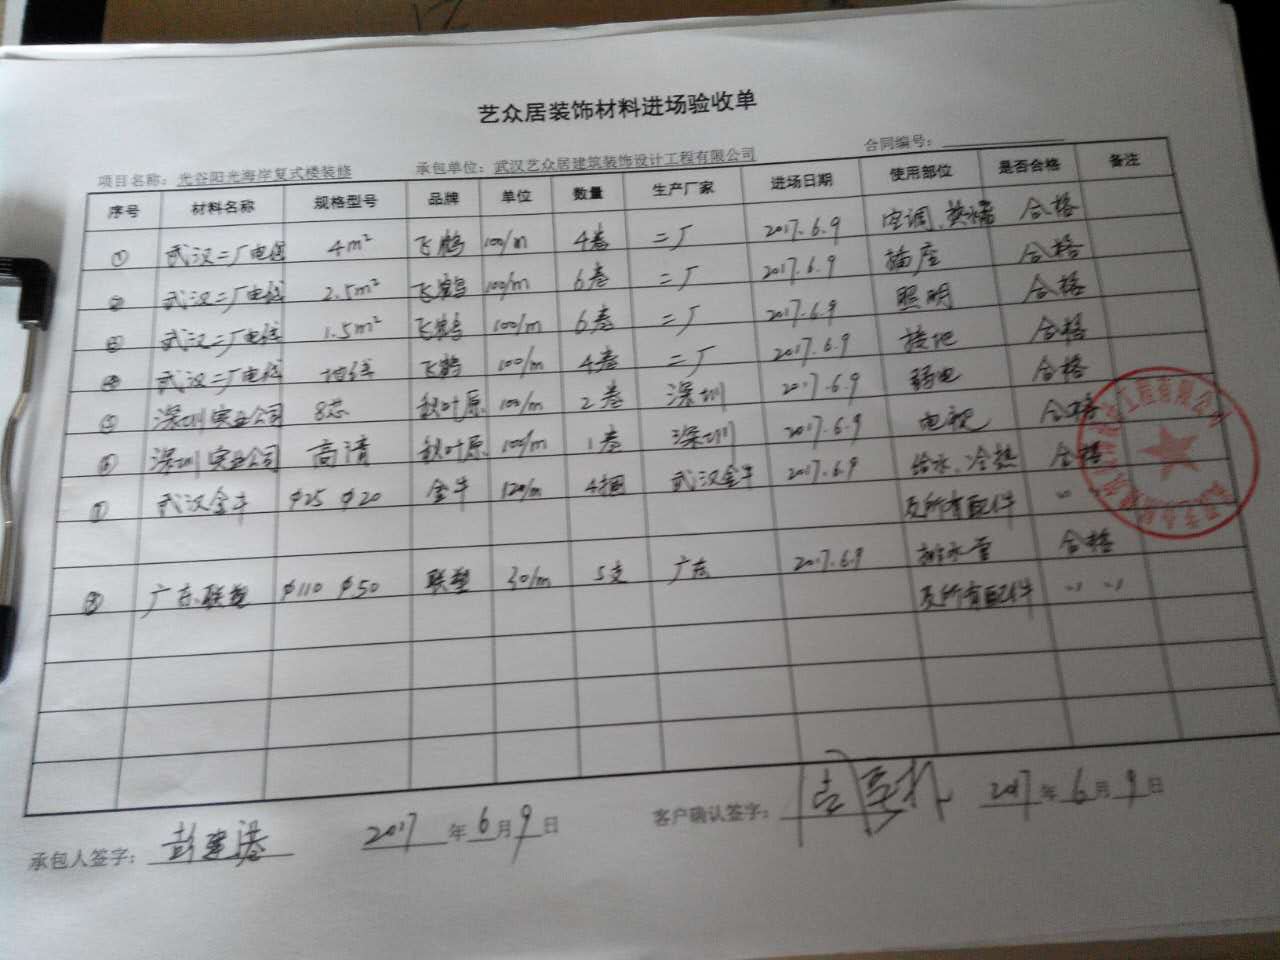 艺众居装饰材料进场验收单
项目名称：光谷阳光海岸复式楼装修 承包单位：武汉艺众居建筑装饰设计工程有限公司 合同编号：
序号 材料名称 规格型号 品牌 单位 数量 生产厂家 进场日期 使用部位 是否合格 备注
① 武汉二厂电线 4m² 飞鹤 100/m 4卷 二厂 2017.6.9 空调、热水器 合格
② 武汉二厂电线 2.5m² 飞鹤 100/m 6卷 二厂 2017.6.9 插座 合格
③ 武汉二厂电线 1.5m² 飞鹤 100/m 6卷 二厂 2017.6.9 照明 合格
④ 武汉二厂电线 飞鹤 100/m 4卷 二厂 2017.6.9 接地 合格
⑤ 深圳实业公司 8芯 秋叶原 100/m 2卷 深圳 2017.6.9 弱电 合格
⑥ 深圳实业公司 高清 秋叶原 100/m 1卷 深圳 2017.6.9 电视 合格
⑦ 武汉金牛 φ25 φ20 金牛 120/m 4捆 武汉金牛 2017.6.9 给水、冷热 合格
及所有配件 〃 〃
⑧ 广东联塑 φ110 φ50 联塑 30/m 5支 广东 2017.6.9 排水管 合格
及所有配件 〃 〃
工程有限公司
承包人签字：彭建港 2017年6月9日 客户确认签字： 2017年6月9日